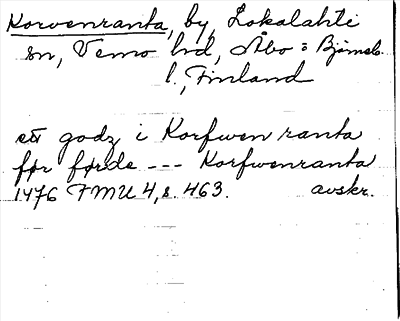 Korvenranta, by, Lokalahti
sn, Vemo hd, Åbo o Björneb.
l., Finland
ett godz i Korfwen ranta
før førde --- Korfwenranta
1476 FMU 4, s. 463. avskr.